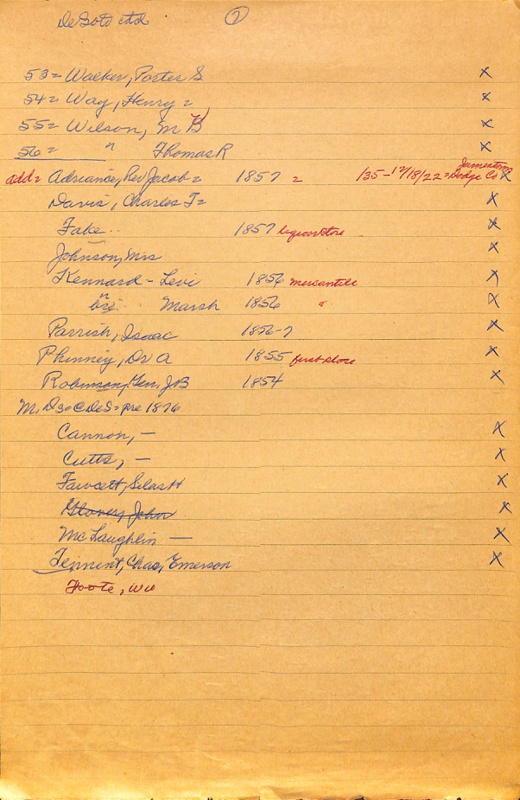 DeSoto ctd 2
53 = Walker, Porter S X
54 = Way, Henry = X
55 = Wilson, M B X
56 = " Thomas R X
add = Adriance, Rev Jacob = 1857 = 135-12/18/22 = Dodge Co X
Davis, Charles T = X
Fake .. 1857 liquor store X
Johnson, Mrs X
Kennard - Levi 1856 mercantile X
" bro .. Marsh 1856 " X
Parrish, Isaac 1856-7 X
Phinney, Dr A 1855 first store X
Robinson, Gen, JB 1854 X
M. D 30 C Ded = pre 1876
Cannon, - X
Cutts, - X
Fawcett, Silas H X
Glover, John X
McLaughlin — X
Tennent, Chas, Emerson X
Foote, Wm